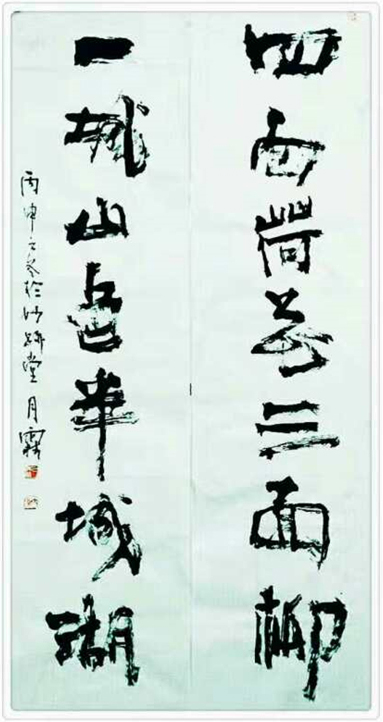 四面荷花三面柳
一城山色半城湖
丙申之冬於竹堂月霖